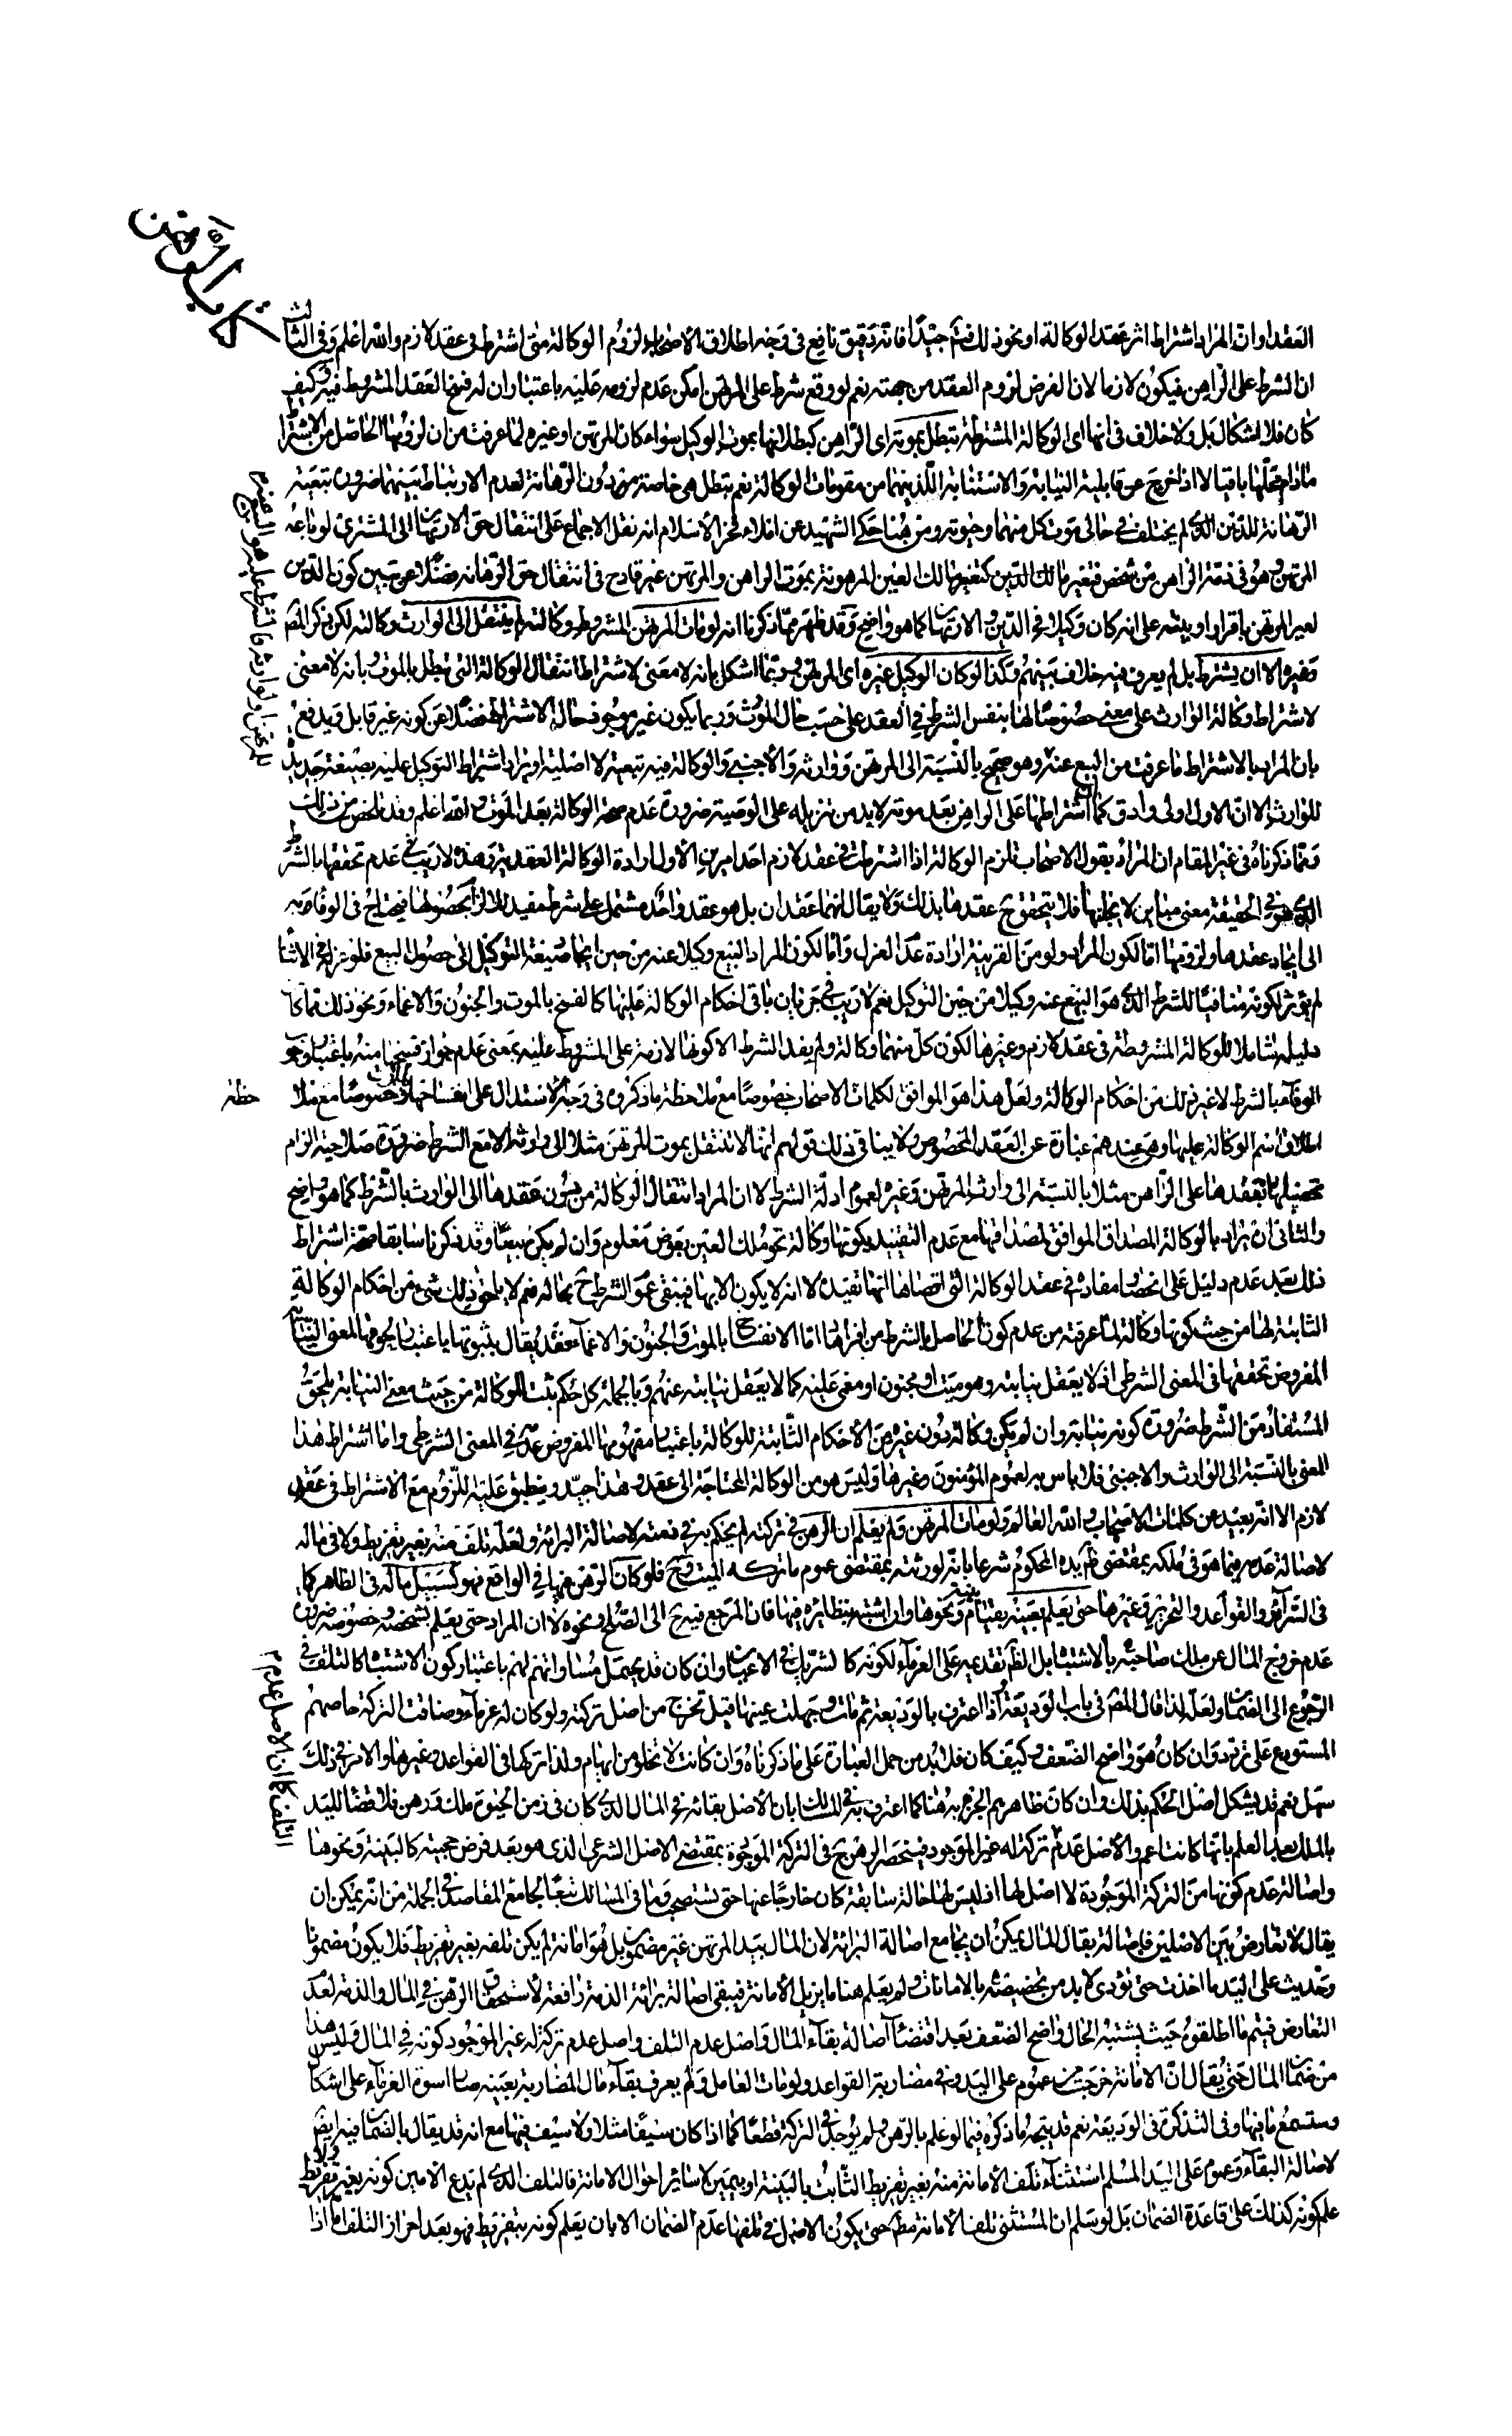 كتاب الرهن
العقد او ان المراد اشتراط اثر عقد الوكالة او نحو ذلك فتأمل جيدا فانه دقيق نافع في وجه اطلاق الاصحاب لزوم الوكالة متى اشترط في عقد لازم والله اعلم وفي الثالث
ان الشرط على الراهن فيكون لازما لان الفرض لزوم العقد من جهته نعم لو وقع شرط على المرتهن امكن عدم لزومه عليه باعتبار ان له فسخ العقد المشروط فيه وكيف
كان فلا اشكال بل ولا خلاف في انها اى الوكالة المشترطة تبطل بموته اى الراهن كبطلانها بموت الوكيل سواء كان المرتهن او غيره لما عرفت من ان لزومها الحاصل من الاشتراط
مادام محلها باقيا لا اذا خرج عن قابلية النيابة والاستنابة اللذين هما من مقومات الوكالة نعم تبطل هي خاصة من دون الرهانة لعدم الارتباط بينهما ضرورة تبعية
الرهانة للدين الذى لم يختلف في حالى موت كل منهما وحيوته ومن هنا حكى الشهيد عن املاء فخر الاسلام انه نقل الاجماع على انتقال حق الارتهان الى المشترى لو باعه
المرتهن وهو في ذمة الراهن من شخص فتغير مالك الدين كتغير مالك العين المرهونة بموت الراهن والمرتهن غير قادح في انتقال حق الرهانة فضلا عن تبين كون الدين
لغير المرتهن باقرار او بينة على انه كان وكيلا في الدين والارتهان كما هو واضح وقد ظهر مما ذكرنا انه لو مات المرتهن المشروط وكالته لم ينتقل الى الوارث وكالته لكن ذكر المص
وغيره الا ان يشترط بل لم يعرف فيه خلاف بينهم وكذا لو كان الوكيل غيره اى المرتهن وربما اشكل بانه لا معنى لاشتراط انتقال الوكالة التى تبطل بالموت وبانه لا معنى
لاشتراط وكالة الوارث على معنى حصولها له بنفس الشرط في العقد على حسب حال الموت وربما يكون غير موجود حال الاشتراط فضلا عن كونه غير قابل ويدفع
بان المراد بالاشتراط ما عرفت من البيع عنه وهو صحيح بالنسبة الى المرتهن ووارثه والاجنبى والوكالة فيه تبعية لا اصلية او يراد اشتراط التوكيل عليه بصيغة جديدة
للوارث الا ان الاول اولى وادق كما ان اشتراطها على الراهن بعد موته لا بد من تنزيله على الوصية ضرورة عدم صحة الوكالة بعد الموت والله اعلم وقد تلخص من ذلك
ومما ذكرناه في غير المقام ان المراد بقول الاصحاب تلزم الوكالة اذا اشترطت في عقد لازم احد امرين الاول ارادة الوكالة العقدية وهذه لا ريب في عدم تحققها بالشرط
الذى هو في الحقيقة معنى مباين لايجابها فلا يتحقق ح عقدها بذلك ولا يقال انهما عقدان بل هو عقد واحد مشتمل على شرط مفيد لالزام بحصولها فيحتاج في الوفاء به
الى ايجاد عقدها ولزومها اما لكون المراد ولو من القرينة ارادة عدم العزل واما لكون المراد البيع وكيلا عنه من حين ايجاد صيغة التوكيل الى حصول البيع فلو عزله في الاثناء
لم يؤثر لكونه منافيا للشرط الذى هو البيع عنه وكيلا من حين التوكيل نعم لا ريب في جريان باقى احكام الوكالة عليها كالفسخ بالموت والجنون والاغماء ونحو ذلك مما كان
دليله شاملا للوكالة المشروطة في عقد لازم وغيرها لكون كل منهما وكالة ولم يفد الشرط الا كونها لازمة على المشروط عليه بمعنى عدم جواز فسخها منه باعتبار وجوب
الوفاء بالشرط لا غير ذلك من احكام الوكالة ولعل هذا هو الموافق لكلمات الاصحاب خصوصا مع ملاحظة ما ذكروه في وجه الاستدلال على انفساخها بالموت وخصوصا مع ملاحظة
اطلاق اسم الوكالة عليها وهى عندهم عبارة عن العقد المخصوص ولا ينافى ذلك قولهم انها لا تنتقل بموت المرتهن مثلا الى وارثه الا مع الشرط ضرورة صلاحية الزام
تحصيلها بعقدها على الراهن مثلا بالنسبة الى وارث المرتهن وغيره لعموم ادلة الشرط لا ان المراد انتقال الوكالة من دون عقدها الى الوارث بالشرط كما هو واضح
والثانى ان يراد بالوكالة المصداق الموافق لمصداقها مع عدم التقييد بكونها وكالة نحو ملك العين بعوض معلوم وان لم يكن بيعا وقد ذكرنا سابقا صحة اشتراط
ذلك بعد عدم دليل على انحصار مفاده في عقد الوكالة التى اقصاها انها تفيده لا انه لا يكون الا بها فيبقى عموم الشرط ح بحاله نعم لا يلحق ذلك شىء من احكام الوكالة
الثابتة لها من حيث كونها وكالة لما عرفته من عدم كون الحاصل بالشرط من افرادها اما الانفساخ بالموت والجنون والاغماء فقد يقال بثبوتها باعتبار لحوقها لمعنى النيابة
المفروض تحققها في المعنى الشرطى اذ لا يعقل نيابته وهو ميت او مجنون او مغمى عليه كما لا يعقل نيابته عنهم وبالجملة كل حكم يثبت للوكالة من حيث معنى النيابة يلحق
المستفاد من الشرط ضرورة كونه نيابة وان لم يكن وكالة دون غيره من الاحكام الثابتة للوكالة باعتبار مفهومها المفروض عدمه في المعنى الشرطى واما اشتراط هذا
المعنى بالنسبة الى الوارث والاجنبى فلا باس به لعموم المؤمنون وغيرها وليس هو من الوكالة المحتاجة الى عقد وهذا جيد وينطبق عليه اللزوم مع الاشتراط في عقد
لازم الا انه بعيد من كلمات الاصحاب والله العالم ولو مات المرتهن ولم يعلم ان الرهن في تركته لم يحكم به في ذمته لاصالة البرائة ولعله تلف منه بغير تفريط ولا في ماله
لاصالة عدمه فيما هو في ملكه بمقتضى ظ يده المحكوم شرعا بانه لورثته بمقتضى عموم ما تركه الميت وح فلو كان الرهن فيها في الواقع فهو كسبيل ماله في الظاهر كما
في السرائر والقواعد والتحرير وغيرها حتى يعلم بعينه بقيام بينة ونحوها وان اشتبه بنظائره فيها فان المرجع فيه ح الى الصلح ونحوه لا ان المراد حتى يعلم بشخصه وخصوصه ضرورة
عدم خروج المال عن ملك صاحبه بالاشتباه بل الظ تقديمه على الغرماء لكونه كالشريك في الاعيان وان كان قد يحتمل مساواتهم لهم باعتبار كون الاشتباه كالتلف في
الرجوع الى الضمان ولعله لذا قال المص في باب الوديعة اذا اعترف بالوديعة ثم مات وجهلت عينها قيل تخرج من اصل تركته ولو كان له غرماء وضاقت التركة حاصهم
المستودع على تردد وان كان هو واضح الضعف وكيف كان فلا بد من حمل العبارة على ما ذكرناه وان كانت لا تخلو من ابهام ولذا تركها في القواعد وغيرها والامر في ذلك
سهل نعم قد يشكل اصل الحكم بذلك وان كان ظاهرهم الجزم به هنا كما اعترف به في المسالك بان الاصل بقائه في المال الذى كان في زمن الحيوة ملك ورهن فلا قضاء لليد
بالملك بعد العلم بانها كانت اعم والاصل عدم تركة له غير الموجود فينحصر الرهن ح في التركة الموجودة بمقتضى الاصل الشرعى الذى هو بعد فرض حجيته كالبينة ونحوها
واصالة عدم كونها من التركة الموجودة لا اصل لها اذ ليس لها حالة سابقة كان خارجا عنها حتى تستصحب وما في المسالك تبعا لجامع المقاصد في الجملة من انه يمكن ان
يقال لا تعارض بين الاصلين فاصالة بقاء المال يمكن ان يجامع اصالة البرائة لان المال بيد المرتهن غير مضمون بل هو امانة لم يكن تلفه بغير تفريط فلا يكون مضمونا
وحديث على اليد ما اخذت حتى تؤدى لا بد من تخصيصه بالامانات ولم يعلم هنا ما يزيل الامانة فيبقى اصالة برائة الذمة رافعة لاستحقاق الرهن في المال والذمة لعدم
التعارض فيتم ما اطلقوه حيث يشتبه الحال واضح الضعف بعد اقتضاء اصالة بقاء المال واصل عدم التلف واصل عدم تركة له غير الموجود كونه في المال وليس هذا
من ضمان المال حتى يقال ان الامانة خرجت من عموم على اليد وفي مضاربة القواعد ولو مات العامل ولم يعرف بقاء مال المضاربة بعينه صار اسوة الغرماء على اشكال
وستسمع ما فيها وفي التذكرة في الوديعة نعم قد يتجه ما ذكروه فيما لو علم بالرهن ولم يوجد في التركة قطعا كما اذا كان سيفا مثلا ولا سيف فيها مع انه قد يقال بالضمان فيه ايض
لاصالة البقاء وعموم على اليد المسلم استثناء تلف الامانة منه بغير تفريط الثابت بالبينة او بيمين لا سائر احوال الامانة فالتلف الذى لم يدع الامين كونه بغير تفريط ولا
علم كونه كذلك على قاعدة الضمان بل لو سلم ان المستثنى تلف الامانة مط حتى يكون الاصل في تلفها عدم الضمان الا بان يعلم كونه بتفريط فهو بعد احراز التلف اما اذا